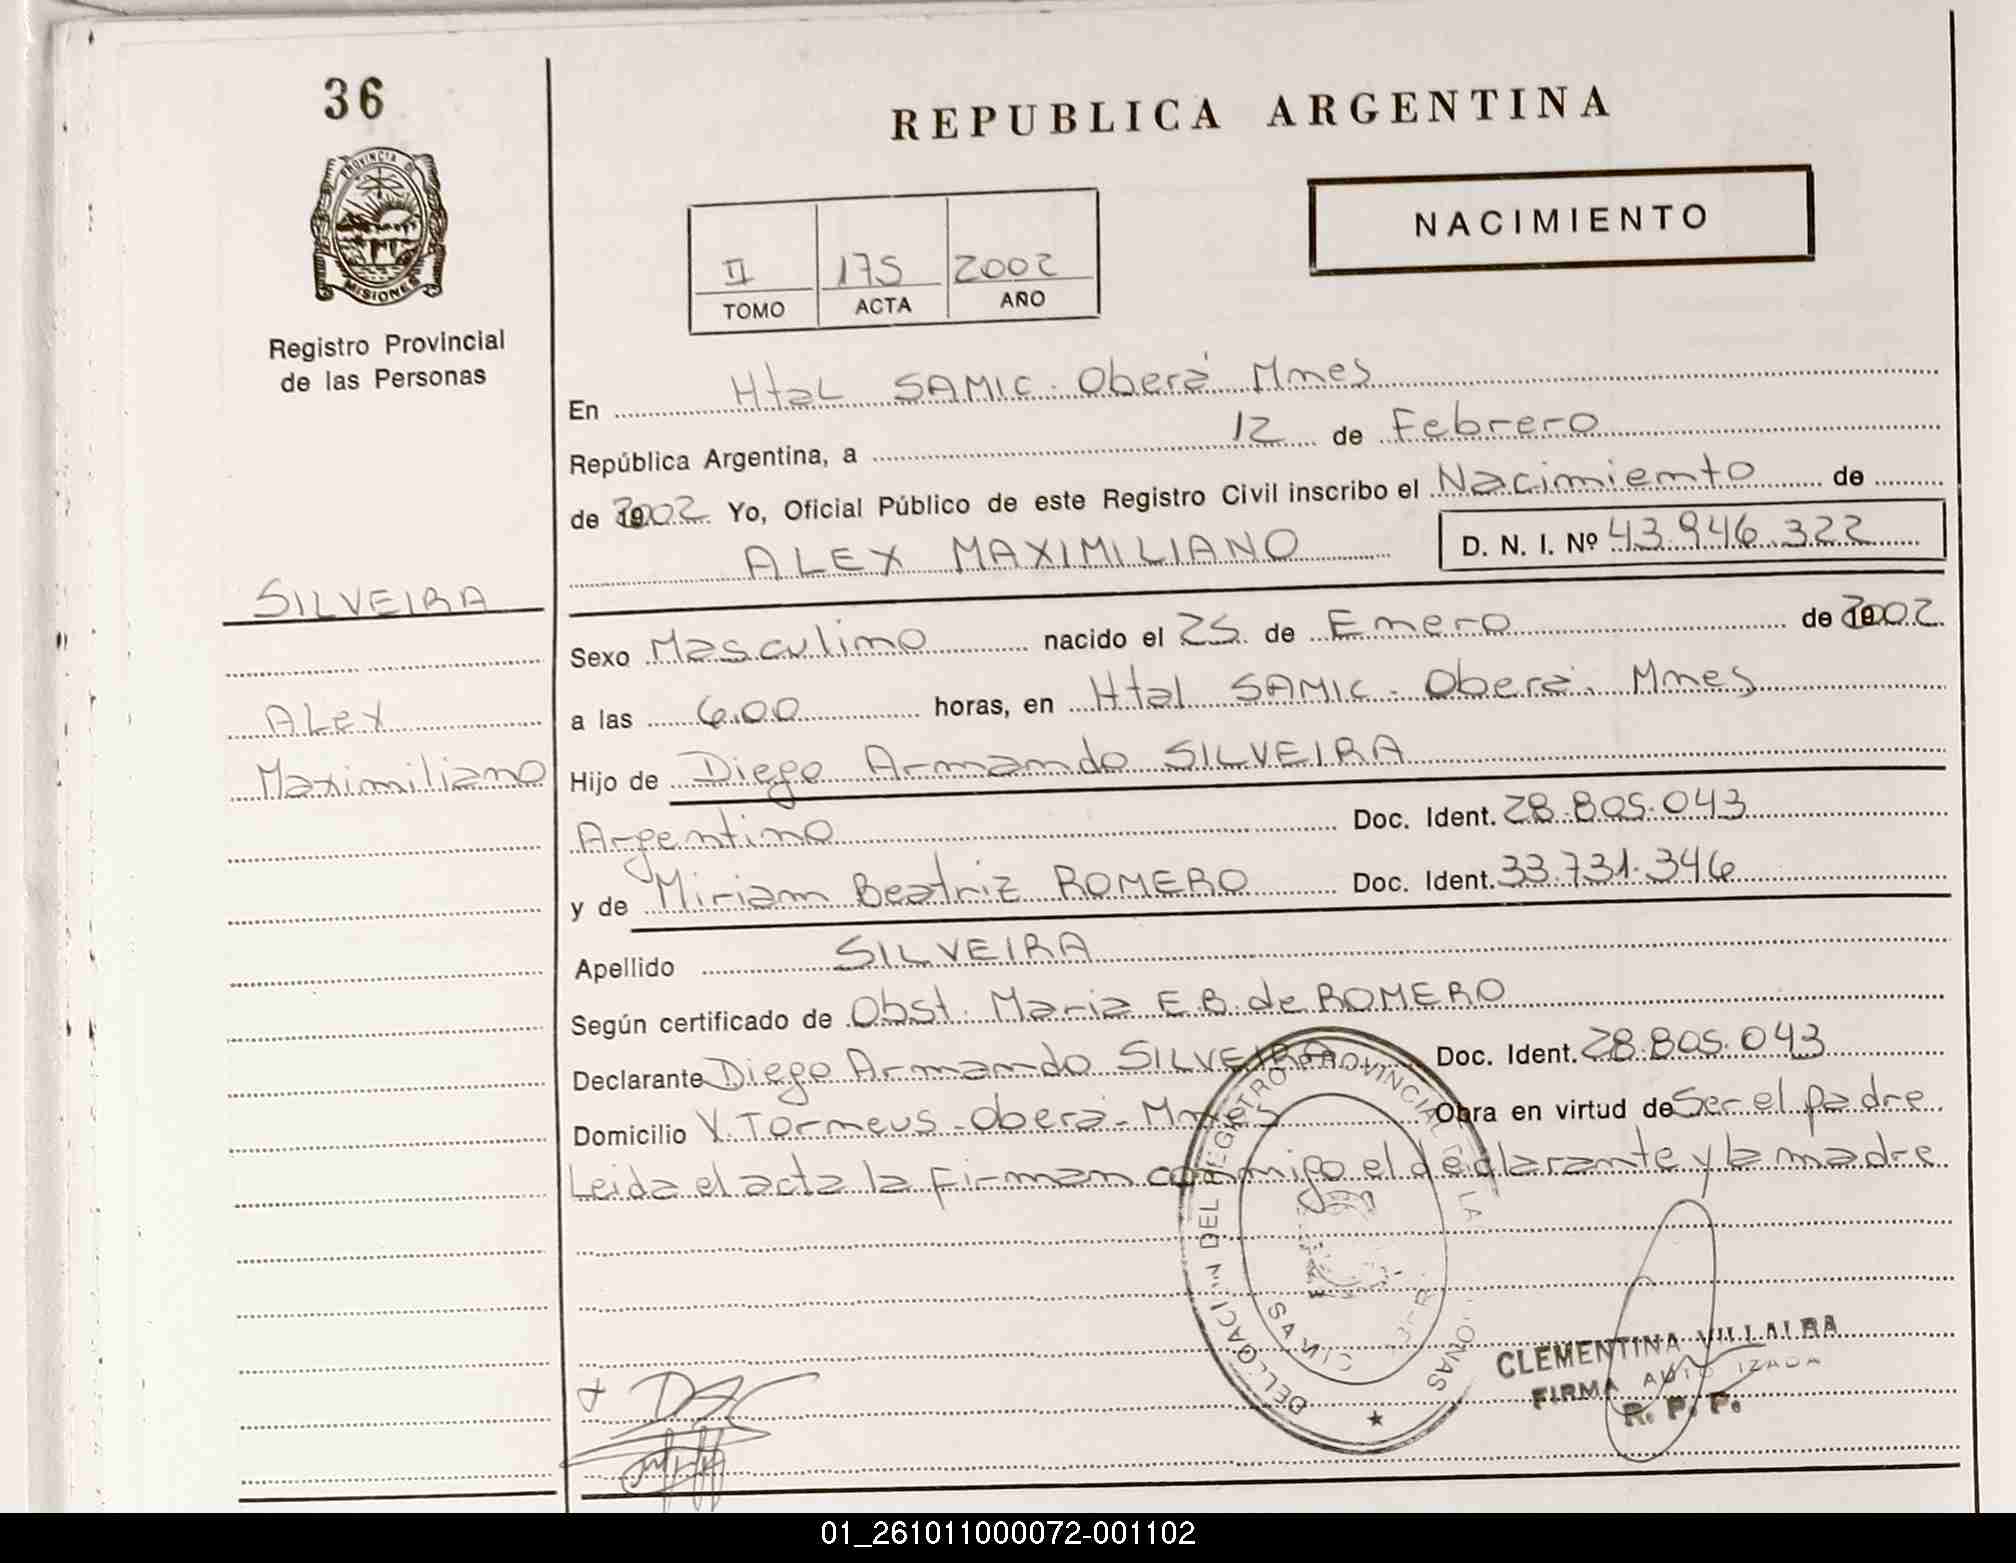 36
PROVINCIA DE
MISIONES
Registro Provincial
de las Personas
SILVEIRA
Alex
Maximiliano
REPUBLICA ARGENTINA
NACIMIENTO
II 175 2002
TOMO ACTA AÑO
En Htal SAMIC. Oberá Mnes
República Argentina, a 12 de Febrero
de 2002 Yo, Oficial Público de este Registro Civil inscribo el Nacimiento de
ALEX MAXIMILIANO D. N. I. Nº 43.946.322
Sexo Masculino nacido el 25 de Enero de 2002
a las 6.00 horas, en Htal SAMIC. Oberá. Mnes
Hijo de Diego Armando SILVEIRA
Argentino Doc. Ident. 28.805.043
y de Miriam Beatriz ROMERO Doc. Ident. 33.731.346
Apellido SILVEIRA
Según certificado de Obst. Maria E.B. de ROMERO
Declarante Diego Armando SILVEIRA Doc. Ident. 28.805.043
Domicilio V. Tormeus - Oberá - Mnes Obra en virtud de Ser el padre
Leida el acta la firman conmigo el declarante y la madre
REGISTRO PROVINCIAL DE LA
CLEMENTINA VILLALBA
FIRMA AUTORIZADA
R. P. P.
01_261011000072-001102